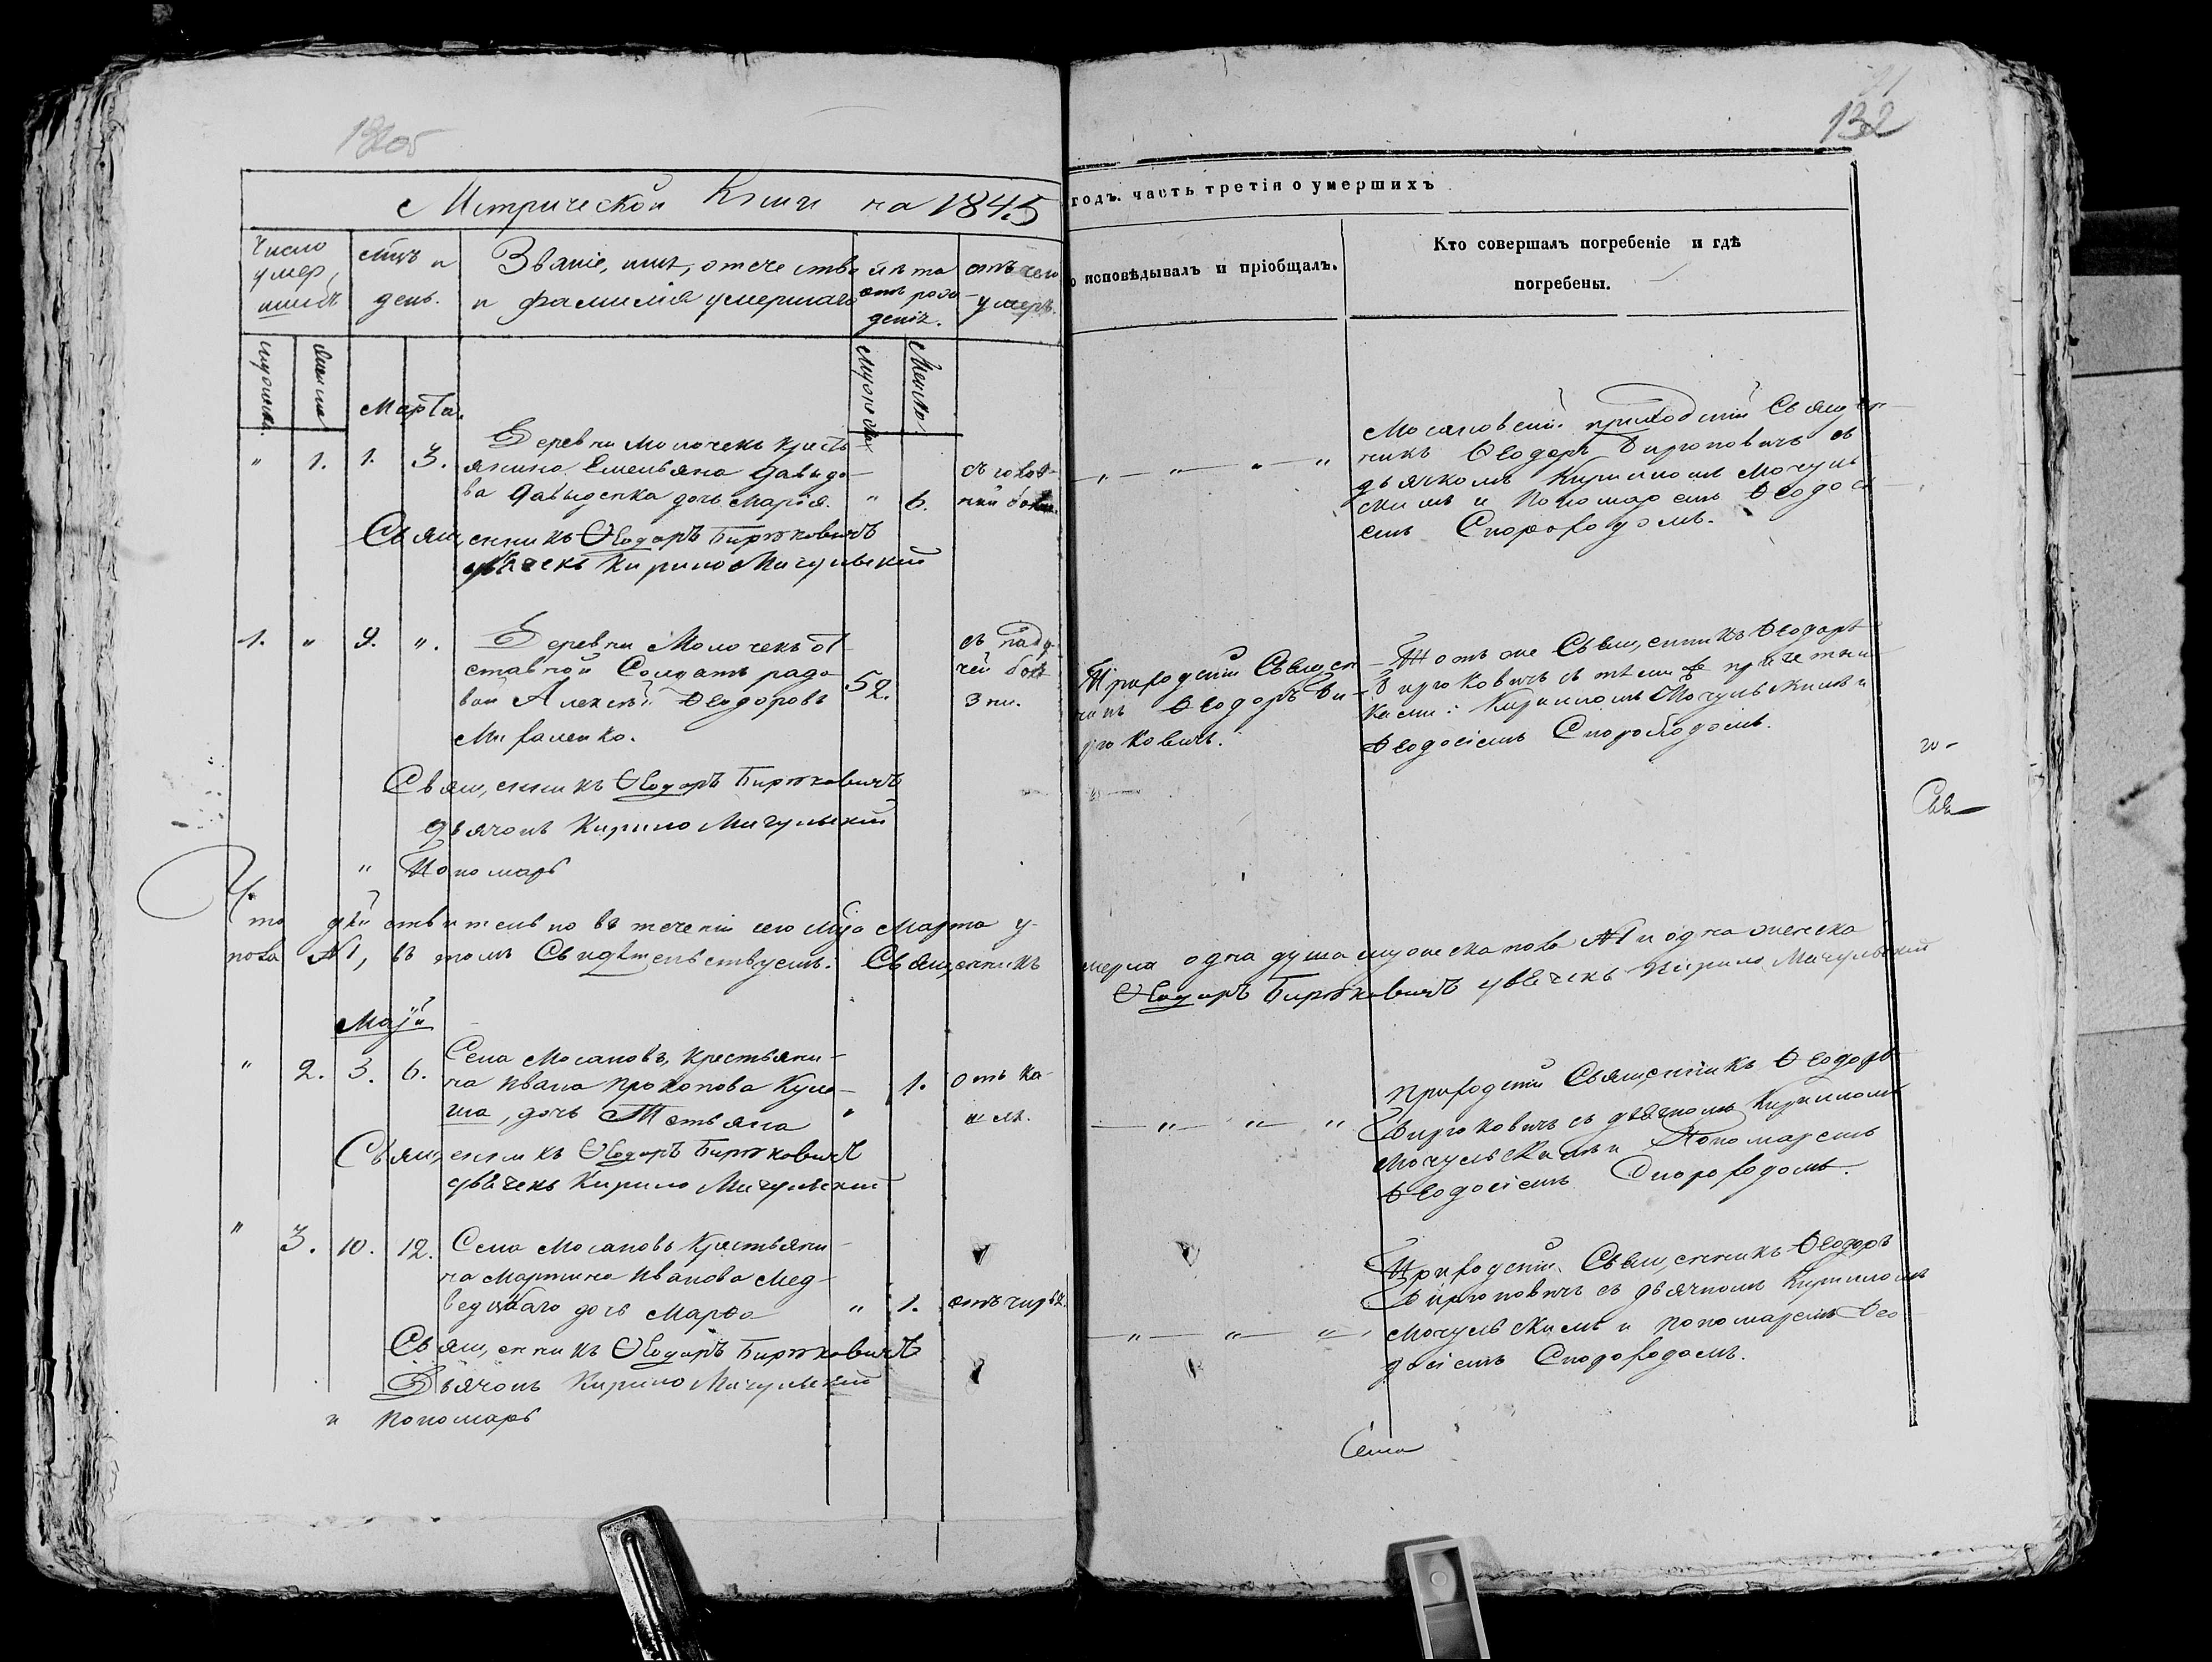 132
Метрической Книги на 1845
годъ. часть третія о умершихъ
Число
умер
шихъ
день.
Званіе, имя, отечество
и фамилія умершаго
лѣта
отъ рож
денія.
отъ чего
умеръ.
исповѣдывалъ и пріобщалъ.
Кто совершалъ погребеніе и гдѣ
погребены.
Марта.
" 1. 1. 3. Деревни Молочекъ кресть
янина Емельяна Давидо-
ва Давыденка дочь Марія. " 6.
Священникъ Ѳеодоръ Бирюковичъ
дьячекъ Кирило Мачульскій
" " " "
приходскій Священ-
никъ Ѳеодоръ Бирюковичъ съ
дьячкомъ Кириломъ Мочуль
скимъ и пономаремъ Ѳеодосі
емъ Скороходомъ.
1. " 9. ". Деревни Молочекъ от
ставной Солдатъ рядо
вой Алексѣй Ѳеодоровъ 52.
съ паду
чей болѣ
зни.
Священникъ Ѳеодоръ Бирюковичъ
Дьячокъ Кирило Мачульскій
" Пономарь
Приходскій Священ
никъ Ѳеодоръ Би-
рюковичъ.
Тотъ же Священникъ Ѳеодоръ
Бирюковичъ съ тѣми же причетни
ками: Кириломъ Мочульскимъ и
Ѳеодосіемъ Скороходомъ.
Что дѣйствительно въ теченіи сего мца Марта у-
мерла одна душа мужеска пола №1 и одна женска
пола №1, въ томъ Свидѣтельствуемъ: Священникъ
Ѳеодоръ Бирюковичъ дьячекъ Кирило Мачульскій
Маія
" 2. 3. 6. Села Мосановъ, крестьяни-
на Ивана Прокопова
дочь Татьяна " 1. отъ ка-
шля.
Священникъ Ѳеодоръ Бирюковичъ
дьячекъ Кирило Мачульскій
" " "
приходскій Священникъ Ѳеодоръ
Бирюковичъ съ дьячкомъ Кириломъ
Мочульскимъ и Пономаремъ
Ѳеодосіемъ Скороходомъ.
" 3. 10. 12. Села Мосановъ Крестьяни-
на Мартина Иванова Мед-
дочь Марѳа " 1.
Священникъ Ѳеодоръ Бирюковичъ
Дьячокъ Кирило Мачульскій
и Пономарь
" " "
Приходскій Священникъ Ѳеодоръ
Бирюковичъ съ дьячкомъ Кириломъ
Мочульскимъ и пономаремъ Ѳео
досіемъ Скороходомъ.
Села